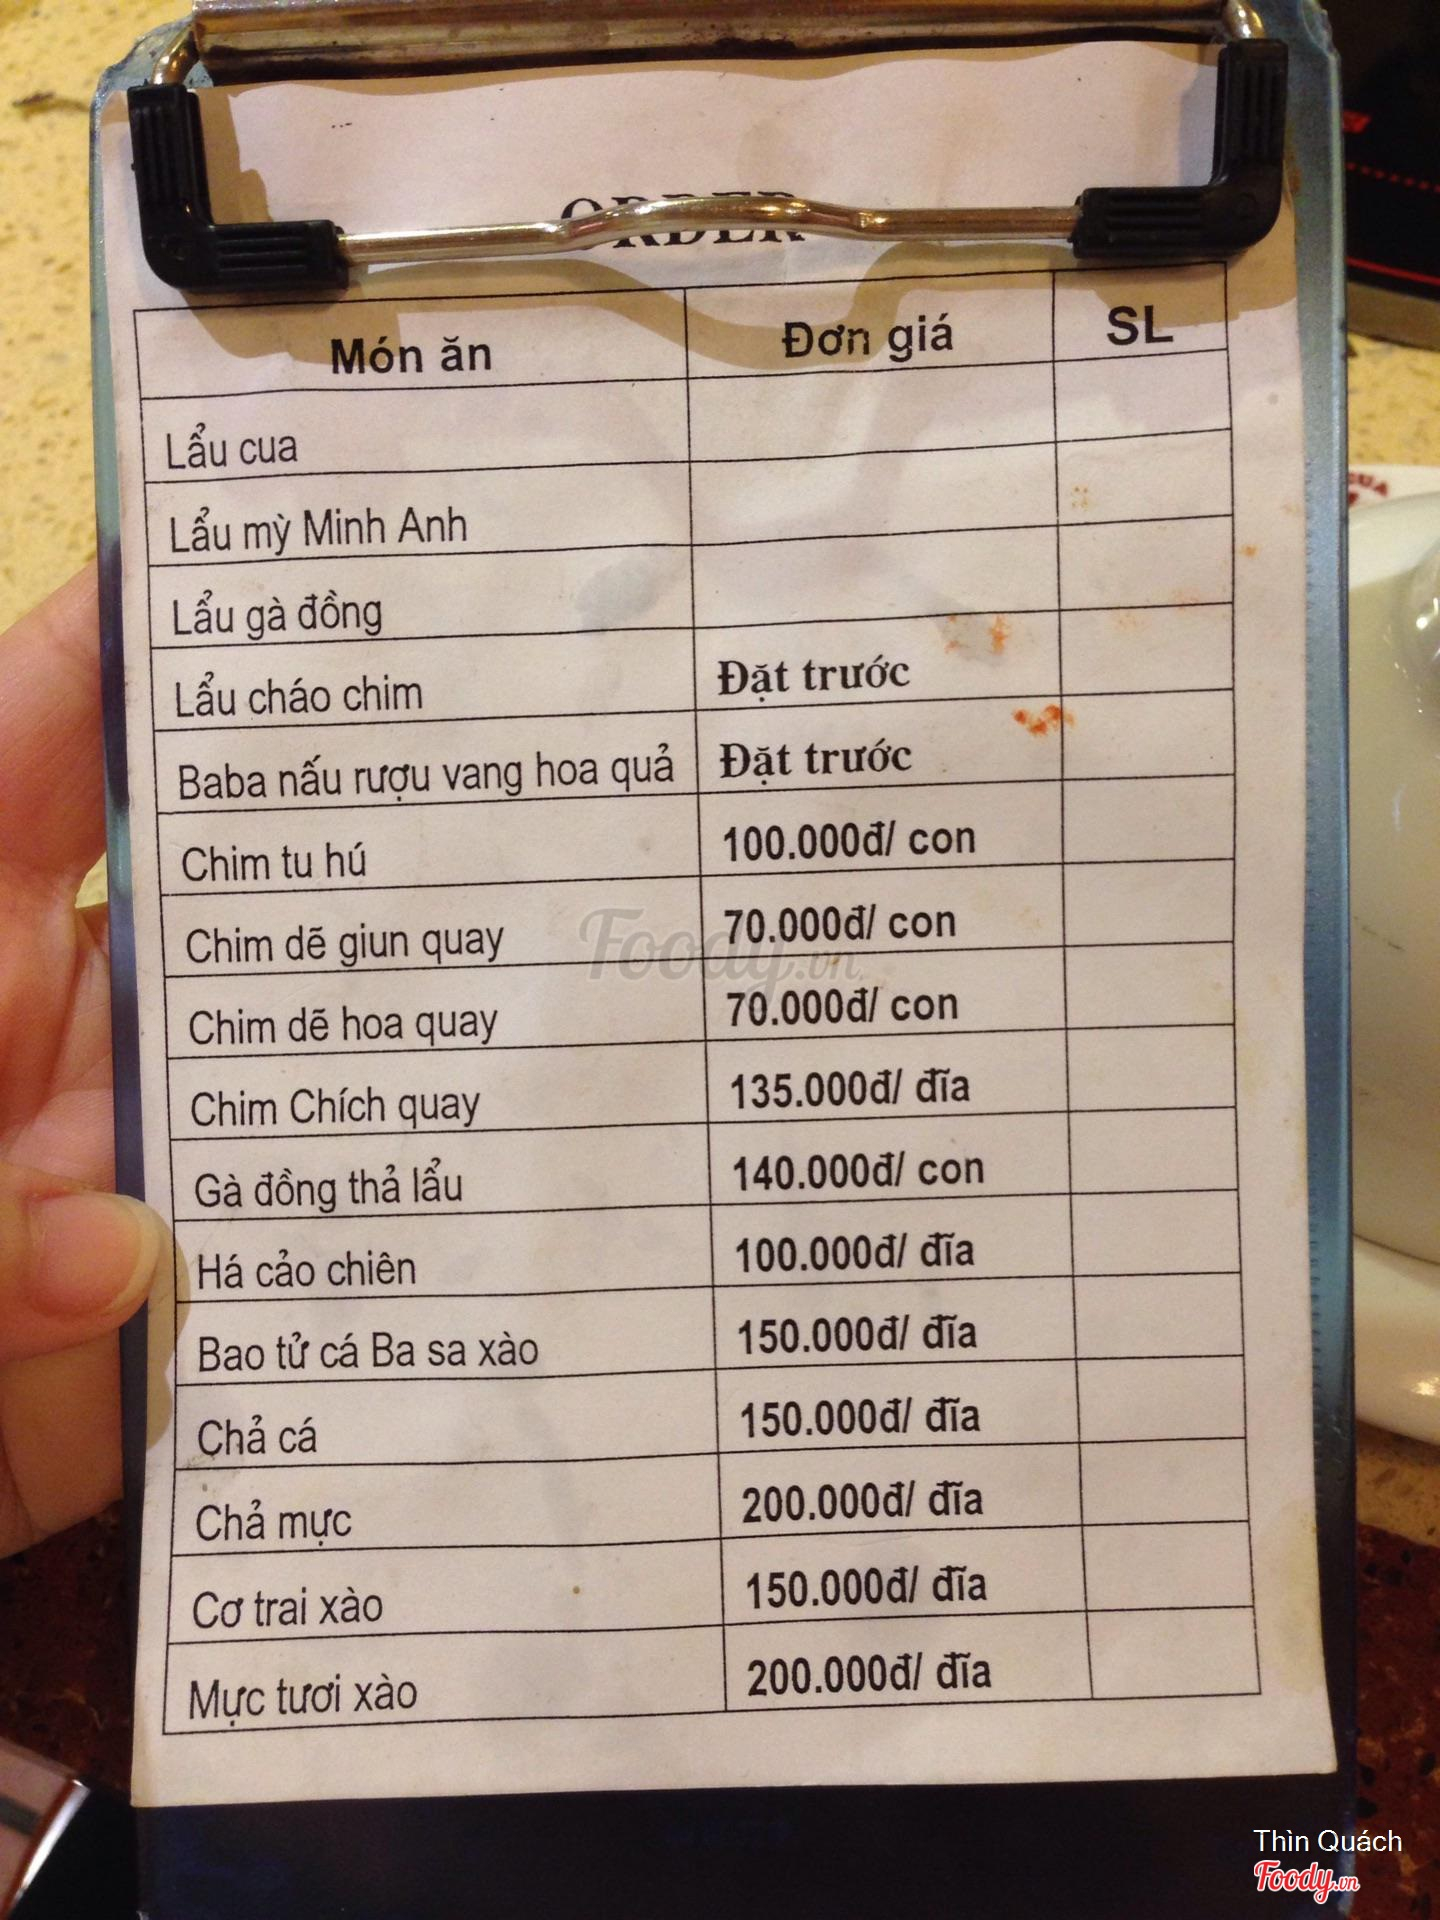 ORDER
Món ăn Đơn giá SL
Lẩu cua
Lẩu mỳ Minh Anh
Lẩu gà đồng
Lẩu cháo chim Đặt trước
Baba nấu rượu vang hoa quả Đặt trước
Chim tu hú 100.000đ/ con
Chim dẽ giun quay 70.000đ/ con
Chim dẽ hoa quay 70.000đ/ con
Chim Chích quay 135.000đ/ đĩa
Gà đồng thả lẩu 140.000đ/ con
Há cảo chiên 100.000đ/ đĩa
Bao tử cá Ba sa xào 150.000đ/ đĩa
Chả cá 150.000đ/ đĩa
Chả mực 200.000đ/ đĩa
Cơ trai xào 150.000đ/ đĩa
Mực tươi xào 200.000đ/ đĩa
Foody.vn
Thìn Quách
Foody.vn